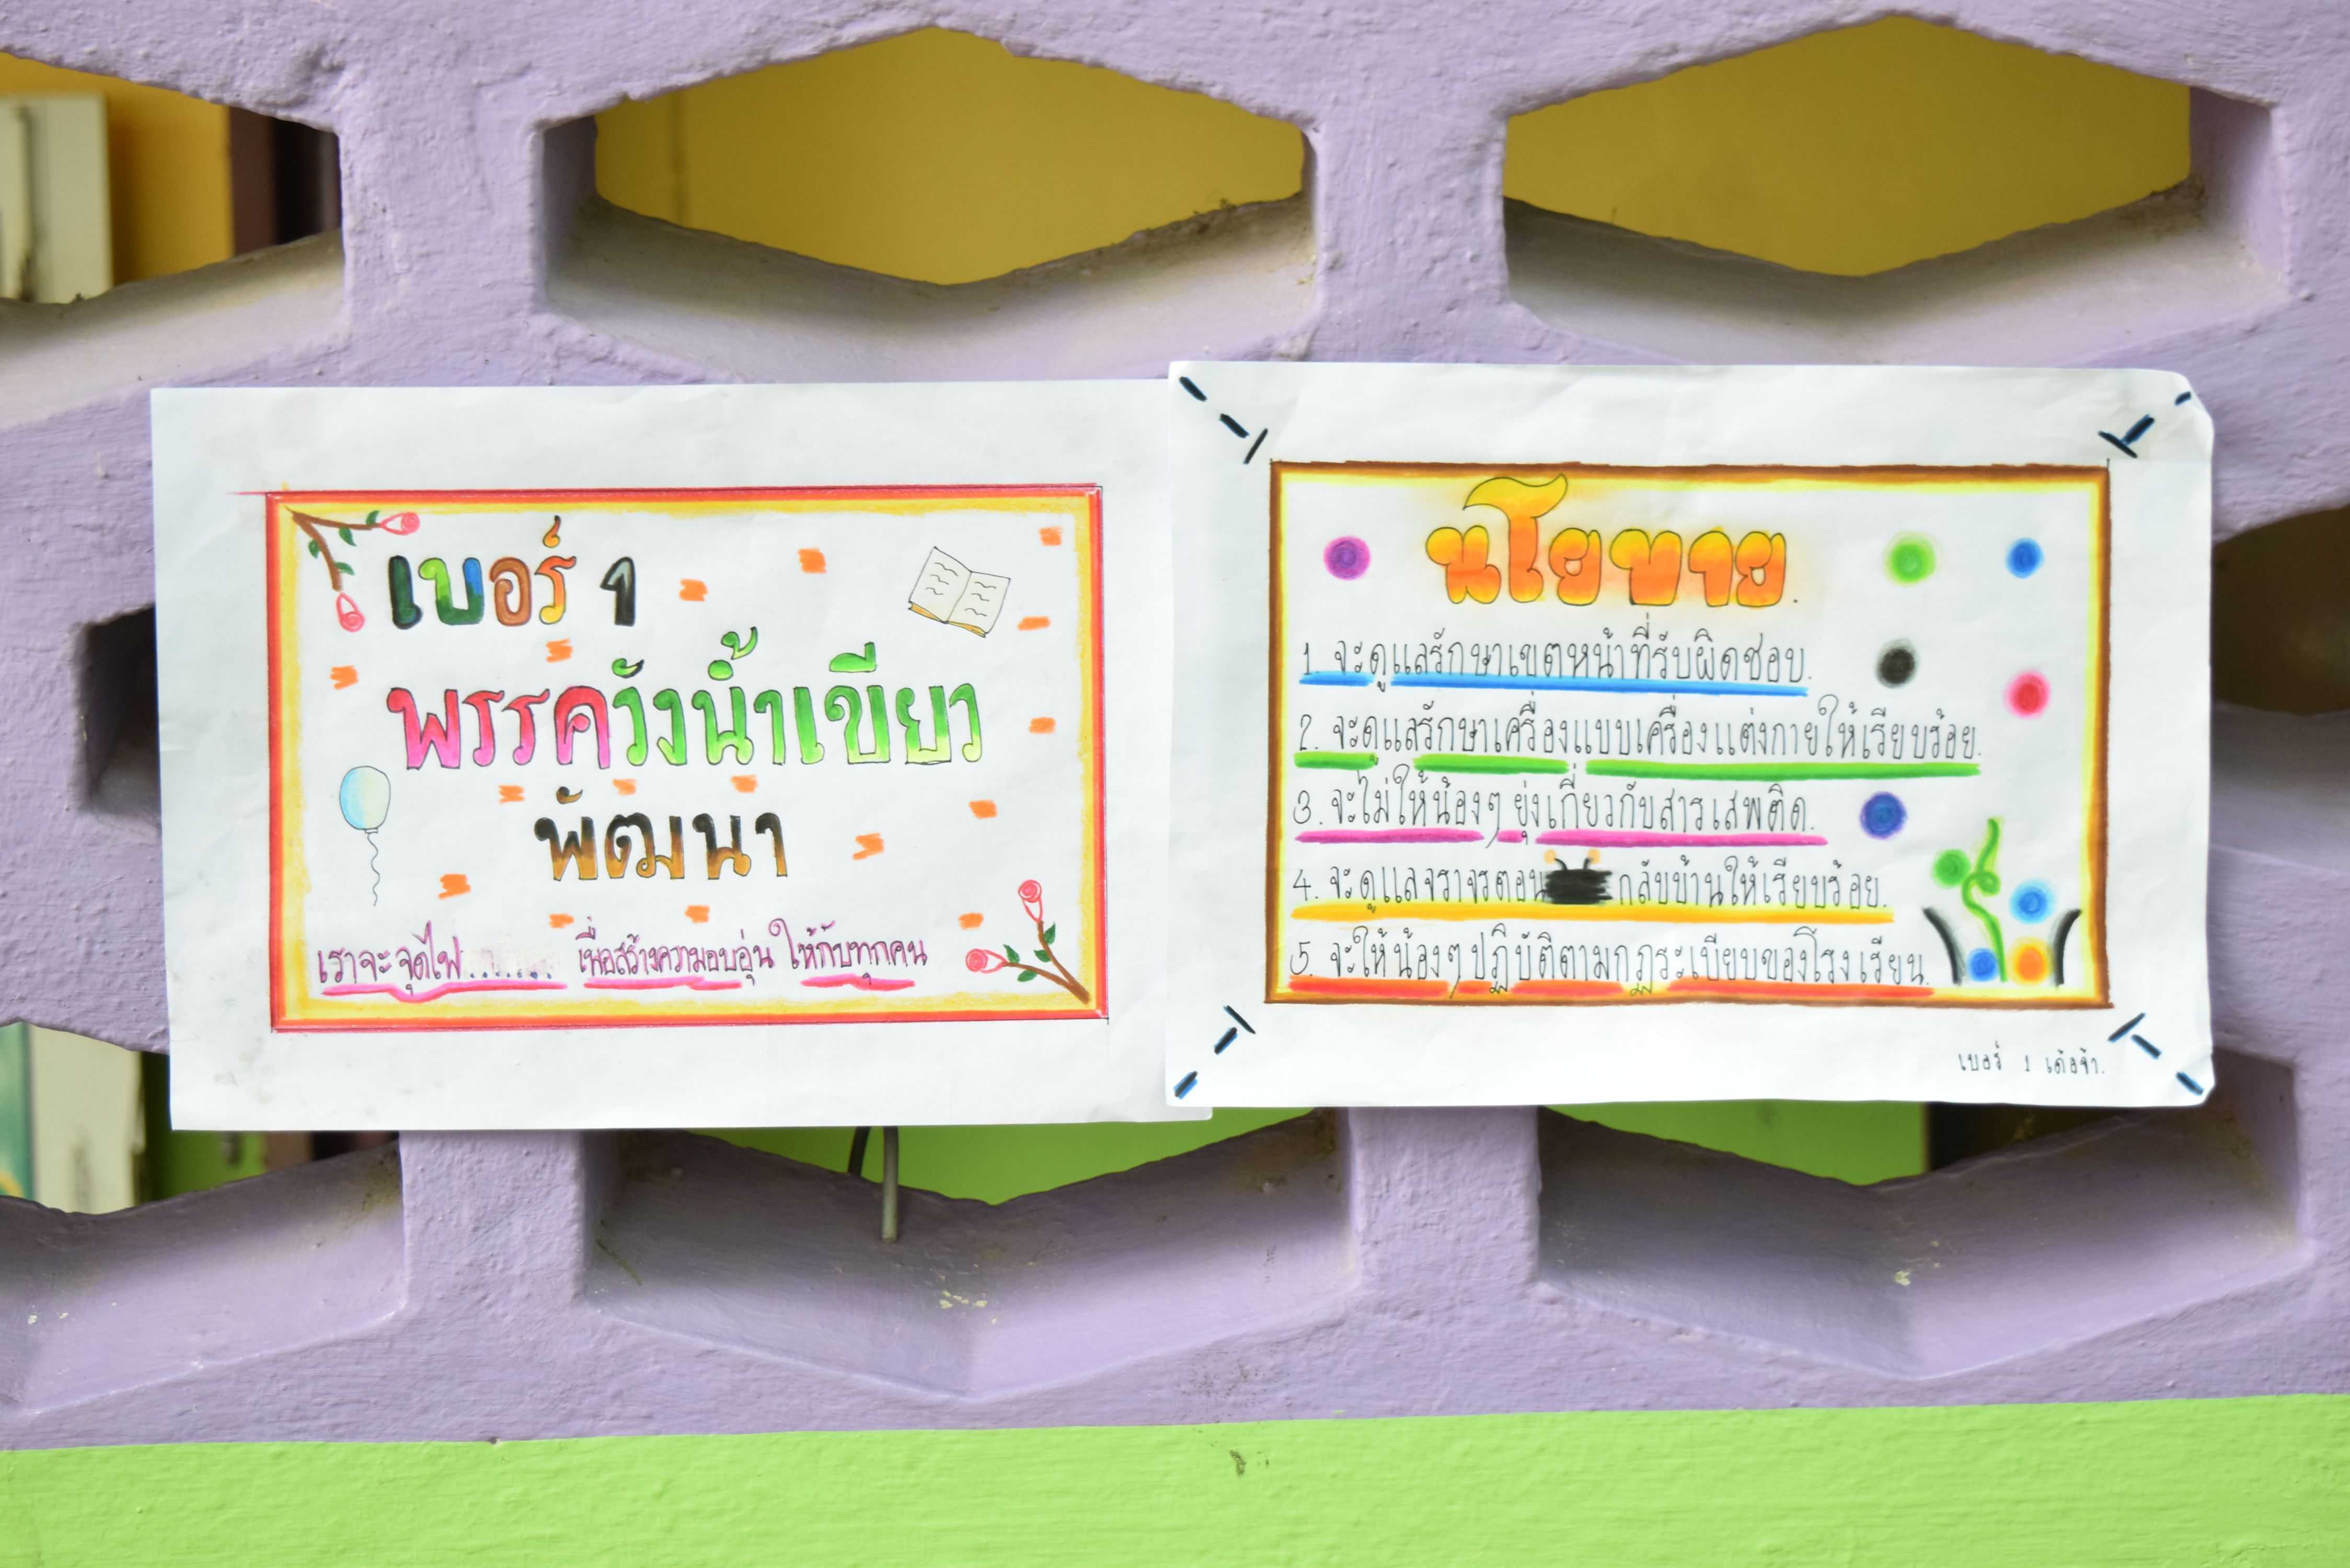 เบอร์ 1
พรรควังน้ำเขียว
พัฒนา
เราจะจุดไฟ........ เพื่อสร้างความอบอุ่น ให้กับทุกคน
นโยบาย.
1. จะดูแลรักษาเขตหน้าที่รับผิดชอบ.
2. จะดูแลรักษาเครื่องแบบเครื่องแต่งกายให้เรียบร้อย.
3. จะไม่ให้น้องๆ ยุ่งเกี่ยวกับสารเสพติด.
4. จะดูแลจราจรตอน กลับบ้านให้เรียบร้อย.
5. จะให้น้องๆ ปฏิบัติตามกฎระเบียบของโรงเรียน.
เบอร์ 1 เด้อจ้า.